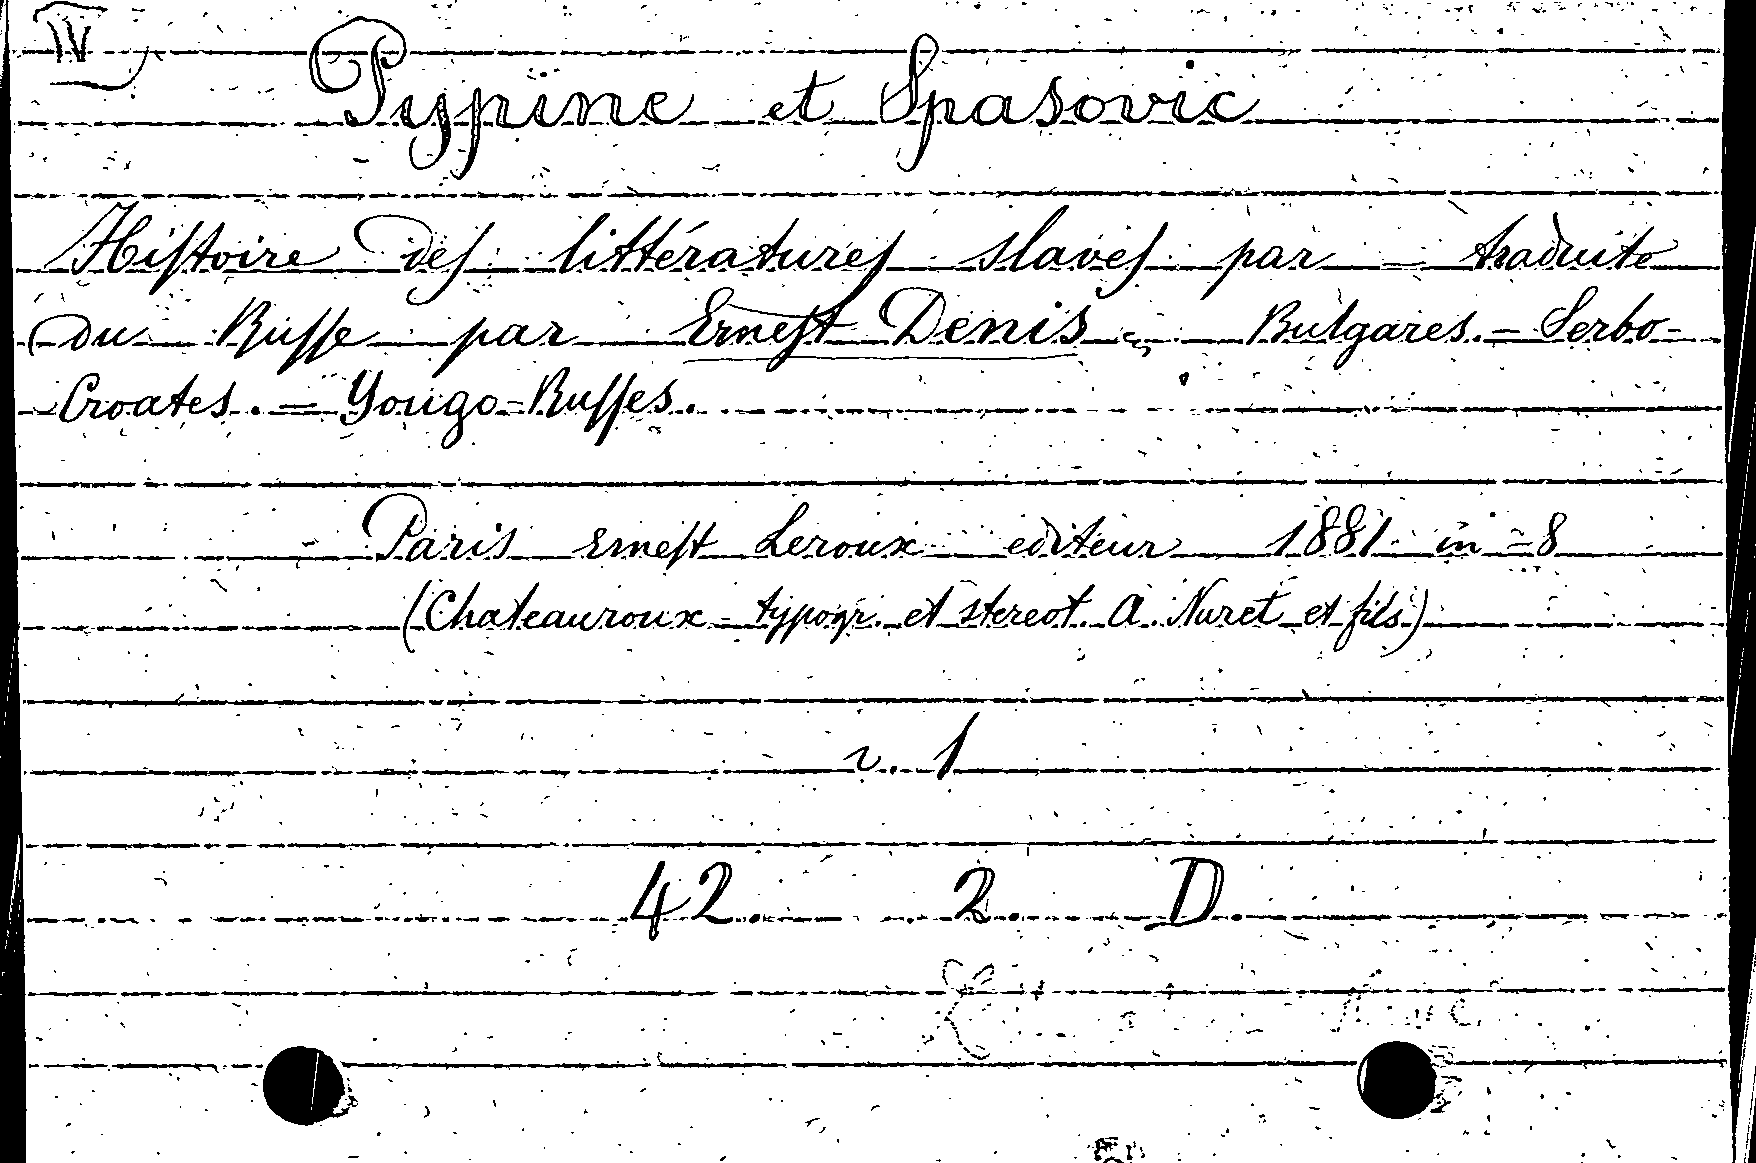 IV
Pypine et Spasovic
Histoire des littératures slaves par — traduite
du Russe par Ernest Denis Bulgares. = Serbo-
Croates. = Yougo-Russes.
Paris Ernest Leroux editeur 1881 in-8
(Chateauroux typogr. et stereot. A. Nuret et fils)
v. 1
42. 2. D.